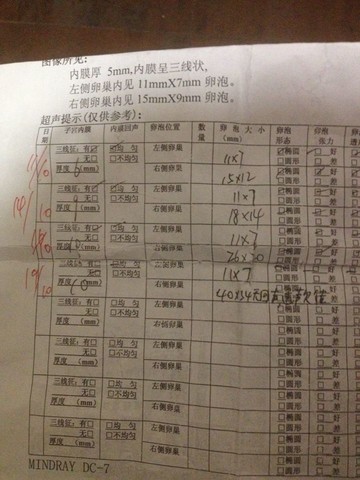 图像所见:
内膜厚 5mm,内膜呈三线状,
左侧卵巢内见 11mmX7mm 卵泡。
右侧卵巢内见 15mmX9mm 卵泡。
超声提示(仅供参考):
日期 子宫内膜 内膜回声 卵泡位置 数量 卵泡大小(mm) 卵泡形态 卵泡张力
三线征:有☑ 无□ 厚度 (mm) ☑均匀 □不均匀 左侧卵巢 11×7 ☑椭圆 □圆形 ☑好 □差
右侧卵巢 15×12
14/10 三线征:有☑ 无□ 厚度 (mm) 均匀 □不均匀 左侧卵巢 11×7 椭圆 □圆形 好 □差
右侧卵巢 18×14
三线征:有 无□ 厚度 (mm) 均匀 □不均匀 左侧卵巢 11×7 椭圆 □圆形 好 □差
右侧卵巢 26×20
19/10 三线征:有□ 无 厚度 10 (mm) 均匀 □不均匀 左侧卵巢 11×7 椭圆 □圆形 好 □差
右侧卵巢 40×34
三线征:有□ 无□ 厚度 (mm) □均匀 □不均匀 左侧卵巢 □椭圆 □圆形 □好 □差
右侧卵巢 □椭圆 □圆形 □好 □差
三线征:有□ 无□ 厚度 (mm) □均匀 □不均匀 左侧卵巢 □椭圆 □圆形 □好 □差
右侧卵巢 □椭圆 □圆形 □好 □差
三线征:有□ 无□ 厚度 (mm) □均匀 □不均匀 左侧卵巢 □椭圆 □圆形 □好 □差
右侧卵巢 □椭圆 □圆形 □好 □差
三线征:有□ 无□ □均匀 □不均匀 左侧卵巢 □椭圆 □圆形 □好 □差
右侧卵巢
MINDRAY DC-7